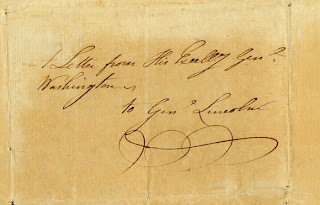 A Letter from His Excelly Genl.
Washington
to Genl. Lincoln